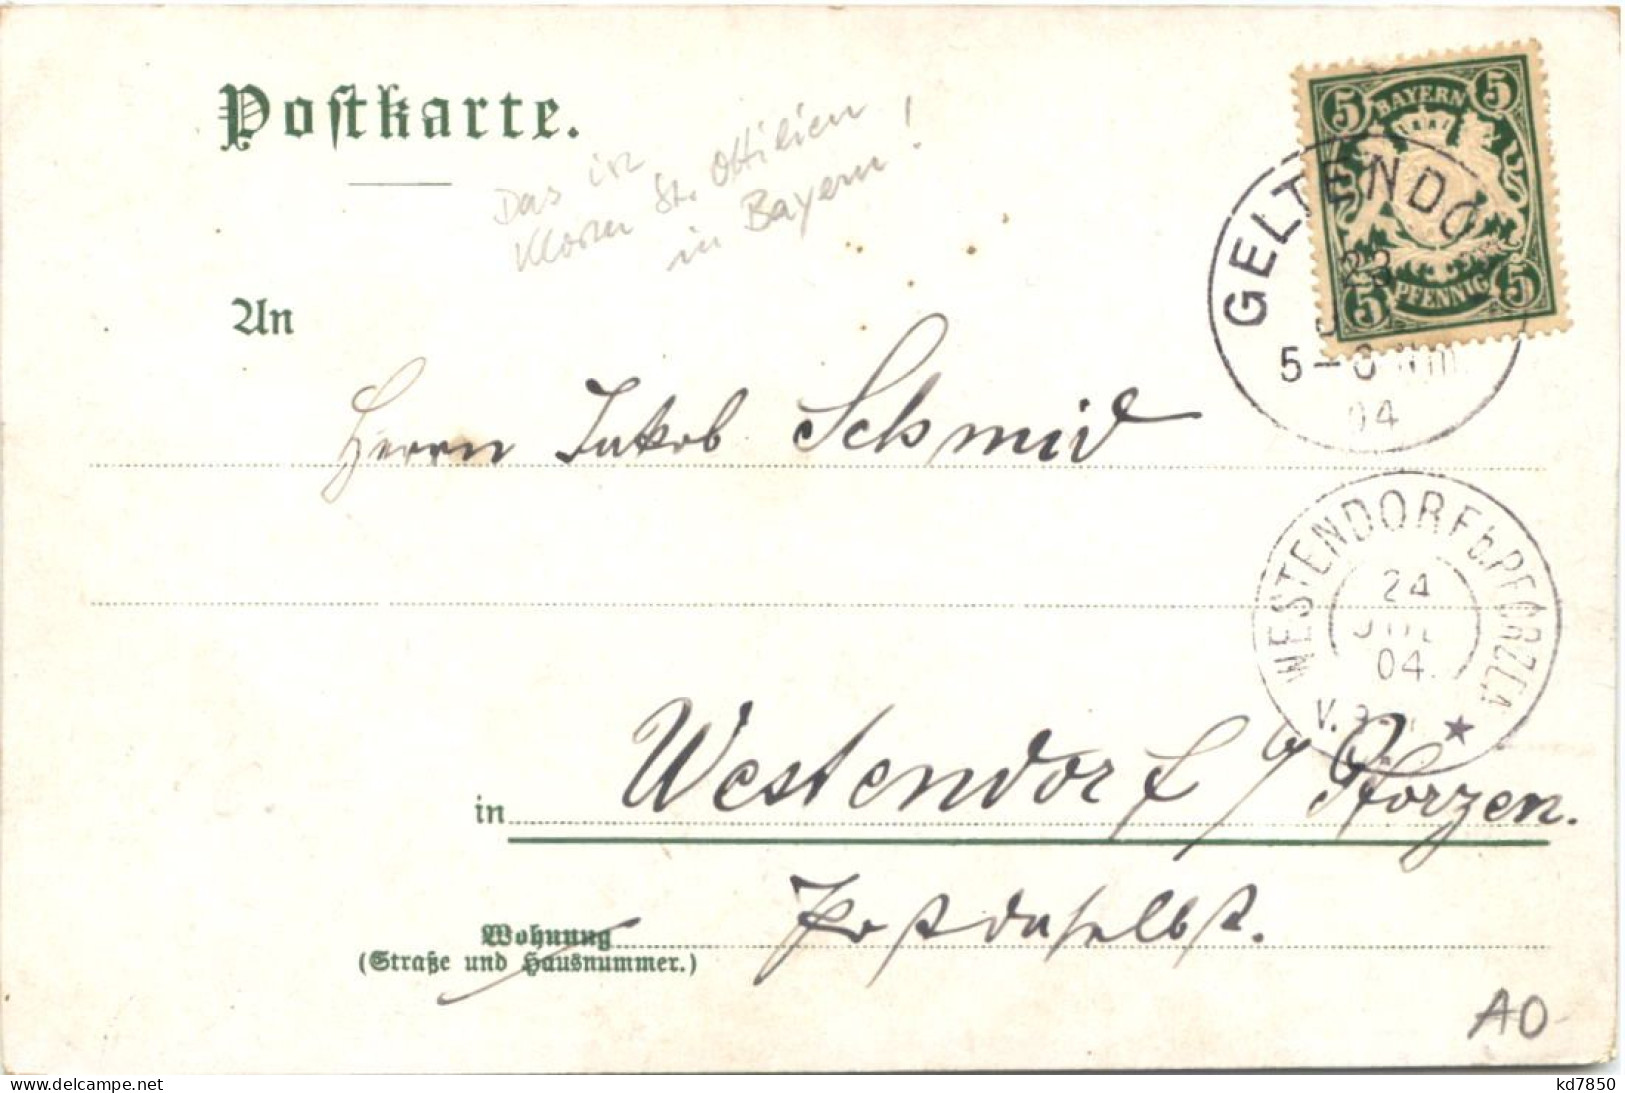 Postkarte.
Das ist
Kloster St. Ottilien
in Bayern!
5 BAYERN 5
5 PFENNIG 5
GELTENDO
23
5-6 Nm.
04
An
Herrn Jakob Schmid
WESTENDORF b. PFORZEN
24
JUL
04.
V.
in Westendorf b/ Pforzen.
Wohnung
(Straße und Hausnummer.)
Post daselbst.
AO
kd7850